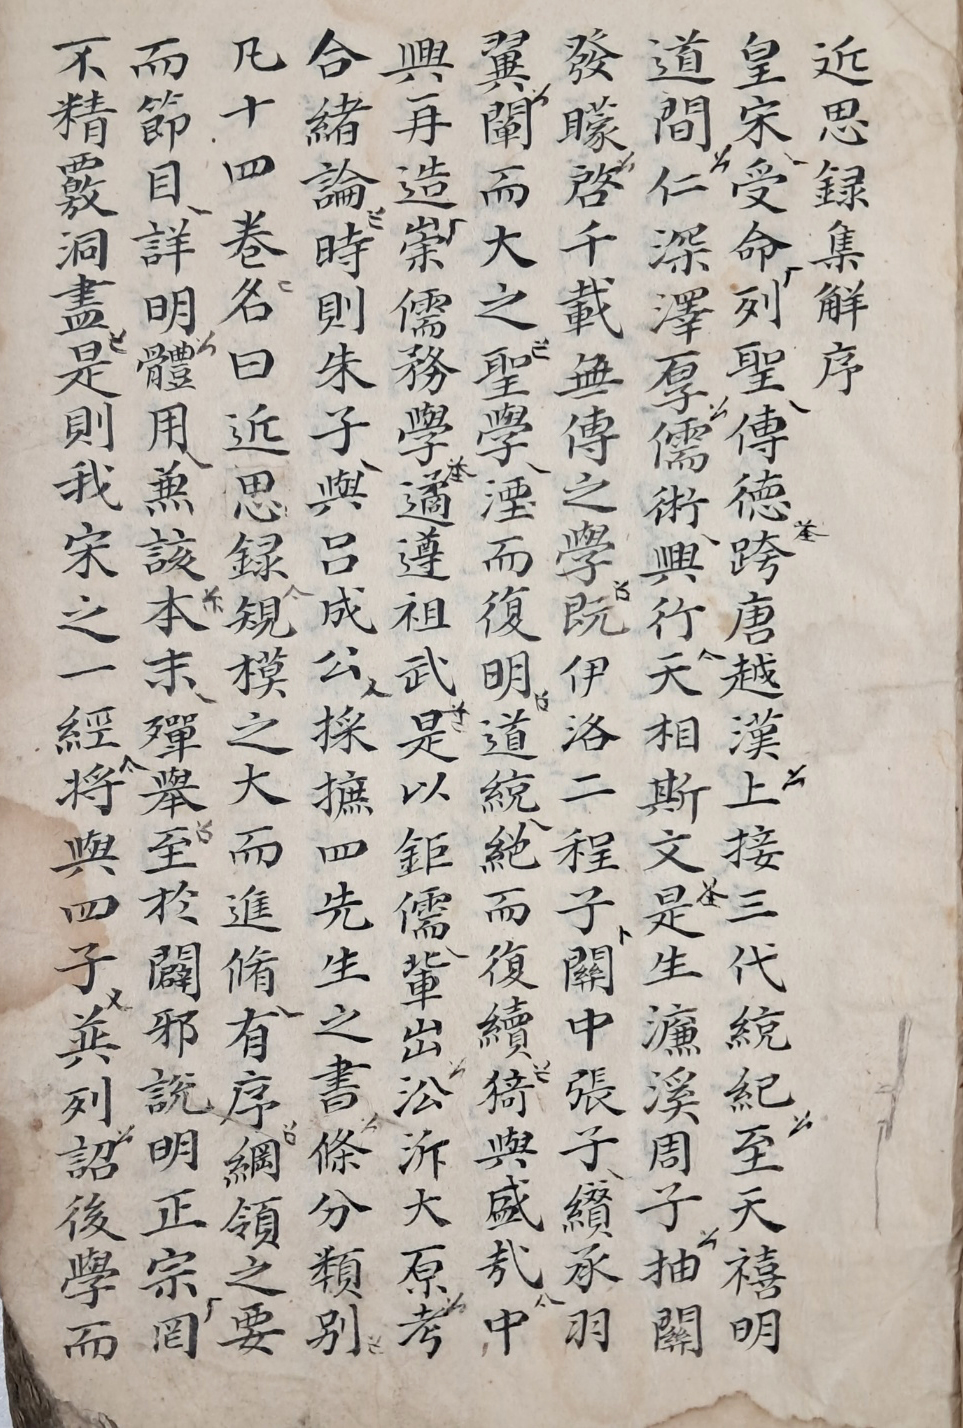 近思録集解序
皇宋受命列聖傳德跨唐越漢上接三代統紀至天禧明
道間仁深澤厚儒術興行天相斯文是生濂溪周子抽關
發矇啓千載無傳之學既伊洛二程子關中張子纘承羽
翼闡而大之聖學湮而復明道統絶而復續猗與盛㢤中
興再造崇儒務學遹遵祖武是以鉅儒軰出沿泝大原考
合緒論時則朱子與吕成公採摭四先生之書條分類別
凡十四卷名曰近思録規模之大而進脩有序綱領之要
而節目詳明體用兼該本末殫舉至於闢邪說明正宗罔
不精覈洞盡是則我宋之一經将與四子並列詔後學而